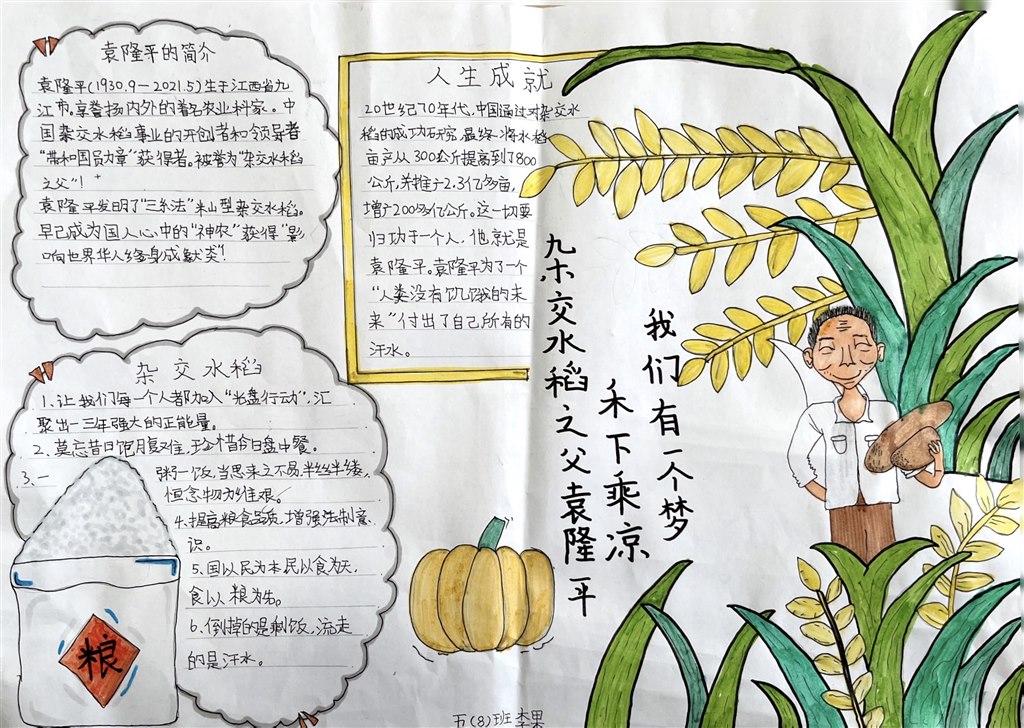 袁隆平的简介
袁隆平(1930.9—2021.5)生于江西省九
江市,享誉扬内外的著名农业科家。中
国杂交水稻事业的开创者和领导者
"共和国员力章"获得者。被誉为"杂交水稻
之父"!
袁隆平发明了"三系法"籼型杂交水稻。
早已成为国人心中的"神农"获得"影
响世界华人终身成就奖"!
人生成就
20世纪70年代,中国通过对杂交水
稻的成功研究,最终将水稻
亩产从300公斤提高到了800
公斤,并推广2.3亿多亩,
增产200多亿公斤。这一切要
归功于一个人,他就是
袁隆平。袁隆平为了一个
"人类没有饥饿的未
来"付出了自己所有的
汗水。
杂交水稻
1.让我们每一个人者加入"光盘行动",汇
聚出一三年强大的正能量。
2.莫忘昔日饱腹难,珍惜今日盘中餐。
3.一粥一饭,当思来之不易,半丝半缕,
恒念物力维艰。
4.提高粮食品质,增强法制意
识。
5.国以民为本民以食为天,
食以粮为先。
6.倒掉的是剩饭,流走
的是汗水。
粮
杂交水稻之父袁隆平
我们有一个梦
禾下乘凉
五(8)班李果